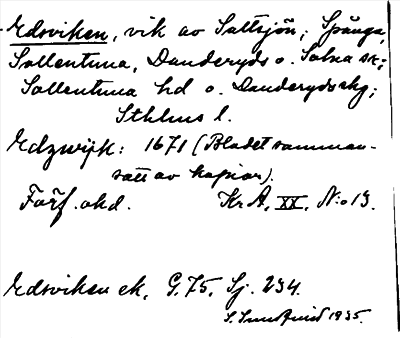 Edsviken, vik av Saltsjön; Spånga,
Sollentuna, Danderyds o. Solna sk:r;
Sollentuna hd o. Danderyds skg;
Sthlms l.
Edzwijk: 1671 (Bladet samman-
satt av kopior).
Förf. okd. Kr A, XX, N:o 13.
Edsviken ek. G. 75, Sj. 234.
S. Sundquist 1935.